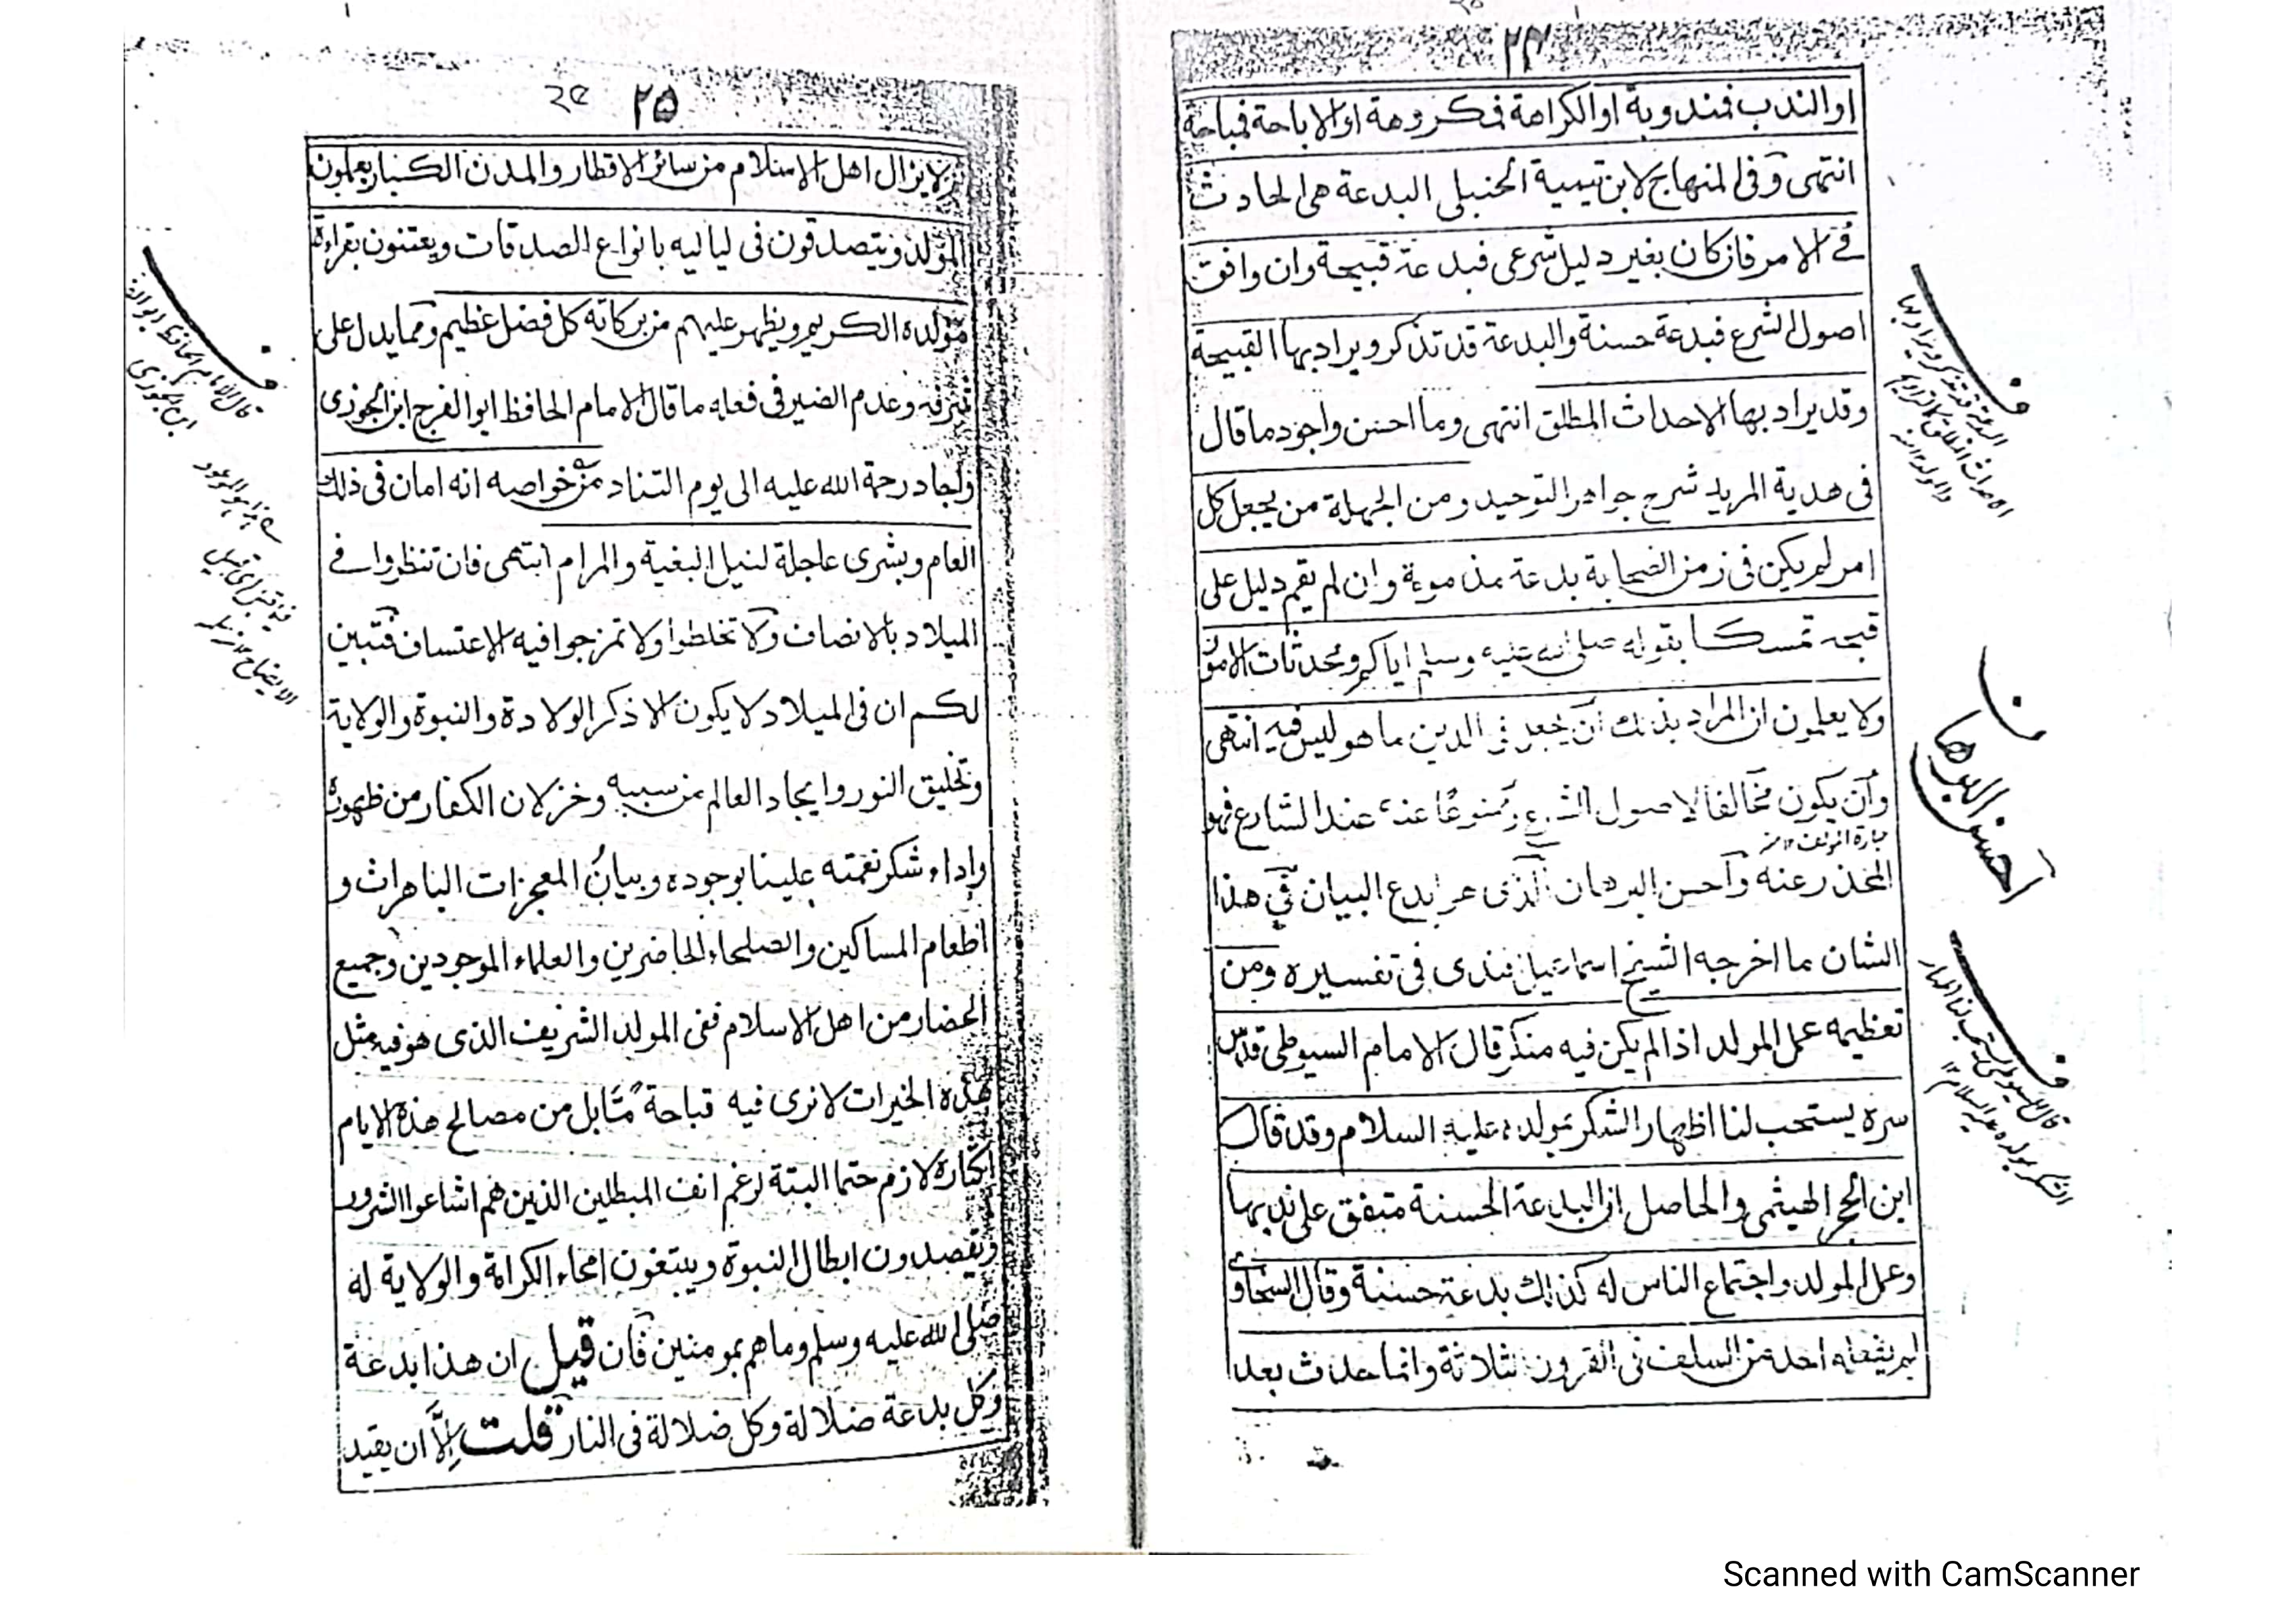 ٢٤
او الندب فمندوبة او الكراهة فمكروهة او الاباحة فمباحة
انتهى وفى المنهاج لابن تيمية الحنبلى البدعة هى الحادث
فے الامر فان كان بغير دليل شرعى فبدعة قبيحة وان وافق
اصول الشرع فبدعة حسنة والبدعة قد تذكر ويراد بها القبيحة
وقد يراد بها الاحداث المطلق انتهى وما احسن واجود ما قال
فى هدية المريد شرح جواهر التوحيد ومن الجهلة من يجعل كل
امر لم يكن فى زمن الصحابة بدعة مذمومة وان لم يقم دليل على
قبحه تمسكا بقوله صلى الله عليه وسلم اياكم ومحدثات الامور
ولا يعلمون ان المراد بذلك ان يجعل فى الدين ما هو ليس فيه انتهى
وان يكون مخالفا لاصول الشرع وممنوعا عنه عند الشارع فهو
عبارة المؤلف ١٢ منہ
المحذر عنه واحسن البرهان الذى هو ابدع البيان فى هذا
الشان ما اخرجه الشيخ اسماعيل افندى فى تفسيره ومن
تعظيمه عمل المولد اذا لم يكن فيه منكر قال الامام السيوطى قدس
سره يستحب لنا اظهار الشكر بمولده عليه السلام وقد قال
ابن الحجر الهيثمى والحاصل ان البدعة الحسنة متفق على ندبها
وعمل المولد واجتماع الناس له كذلك بدعة حسنة وقال السخاوى
لم يفعله احد من السلف فى القرون الثلاثة وانما حدث بعد
ف
البدعة قد تذكر ويراد بها
الاحداث المطلق
ف
احسن البرهان
ف
قال السيوطى يستحب لنا اظهار
الشكر بمولده عليه السلام ١٢
٢٥
लا يزال اهل الاسلام من سائر الاقطار والمدن الكبار يعملون
المولد ويتصدقون فى لياليه بانواع الصدقات ويعتنون بقراءة
مولده الكريم ويظهر عليهم من بركاته كل فضل عظيم ومما يدل على
شرفه وعدم الضير فى فعله ما قال الامام الحافظ ابو الفرج ابن الجوزى
واجاد رحمة الله عليه الى يوم التناد من خواصه انه امان فى ذلك
العام وبشرى عاجلة لنيل البغية والمرام انتهى فان تنظروا فے
الميلاد بالانصاف ولا تخلطوا ولا تمزجوا فيه الاعتساف فتبين
لكم ان فى الميلاد لا يكون الا ذكر الولادة والنبوة والولاية
وتخليق النور وايجاد العالم من سببه وخزلان الكفار من ظهوره
واداء شكر نعمته علينا بوجوده وبيان المعجزات الباهرات و
اطعام المساكين والصلحاء الحاضرين والعلماء الموجودين وجميع
الحضار من اهل الاسلام ففى المولد الشريف الذى هو فيه مثل
هذه الخيرات لا نرى فيه قباحة ما بل من مصالح هذه الايام
اكثاره لازم حتما البتة لرغم انف المبطلين الذين هم اشاعوا الشرور
ويقصدون ابطال النبوة ويبتغون امحاء الكرامة والولاية له
صلى الله عليه وسلم وما هم بمومنين فان قيل ان هذا بدعة
وكل بدعة ضلالة وكل ضلالة فى النار قلت الا ان يقيد
ف
قال الامام الحافظ ابو الفرج
ابن الجوزى
Scanned with CamScanner